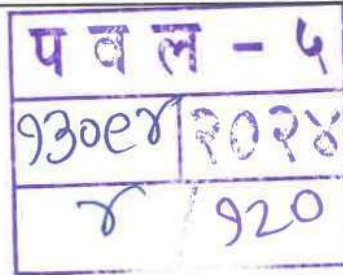 पवल - ५
१३०९४ २०२४
४ १२०